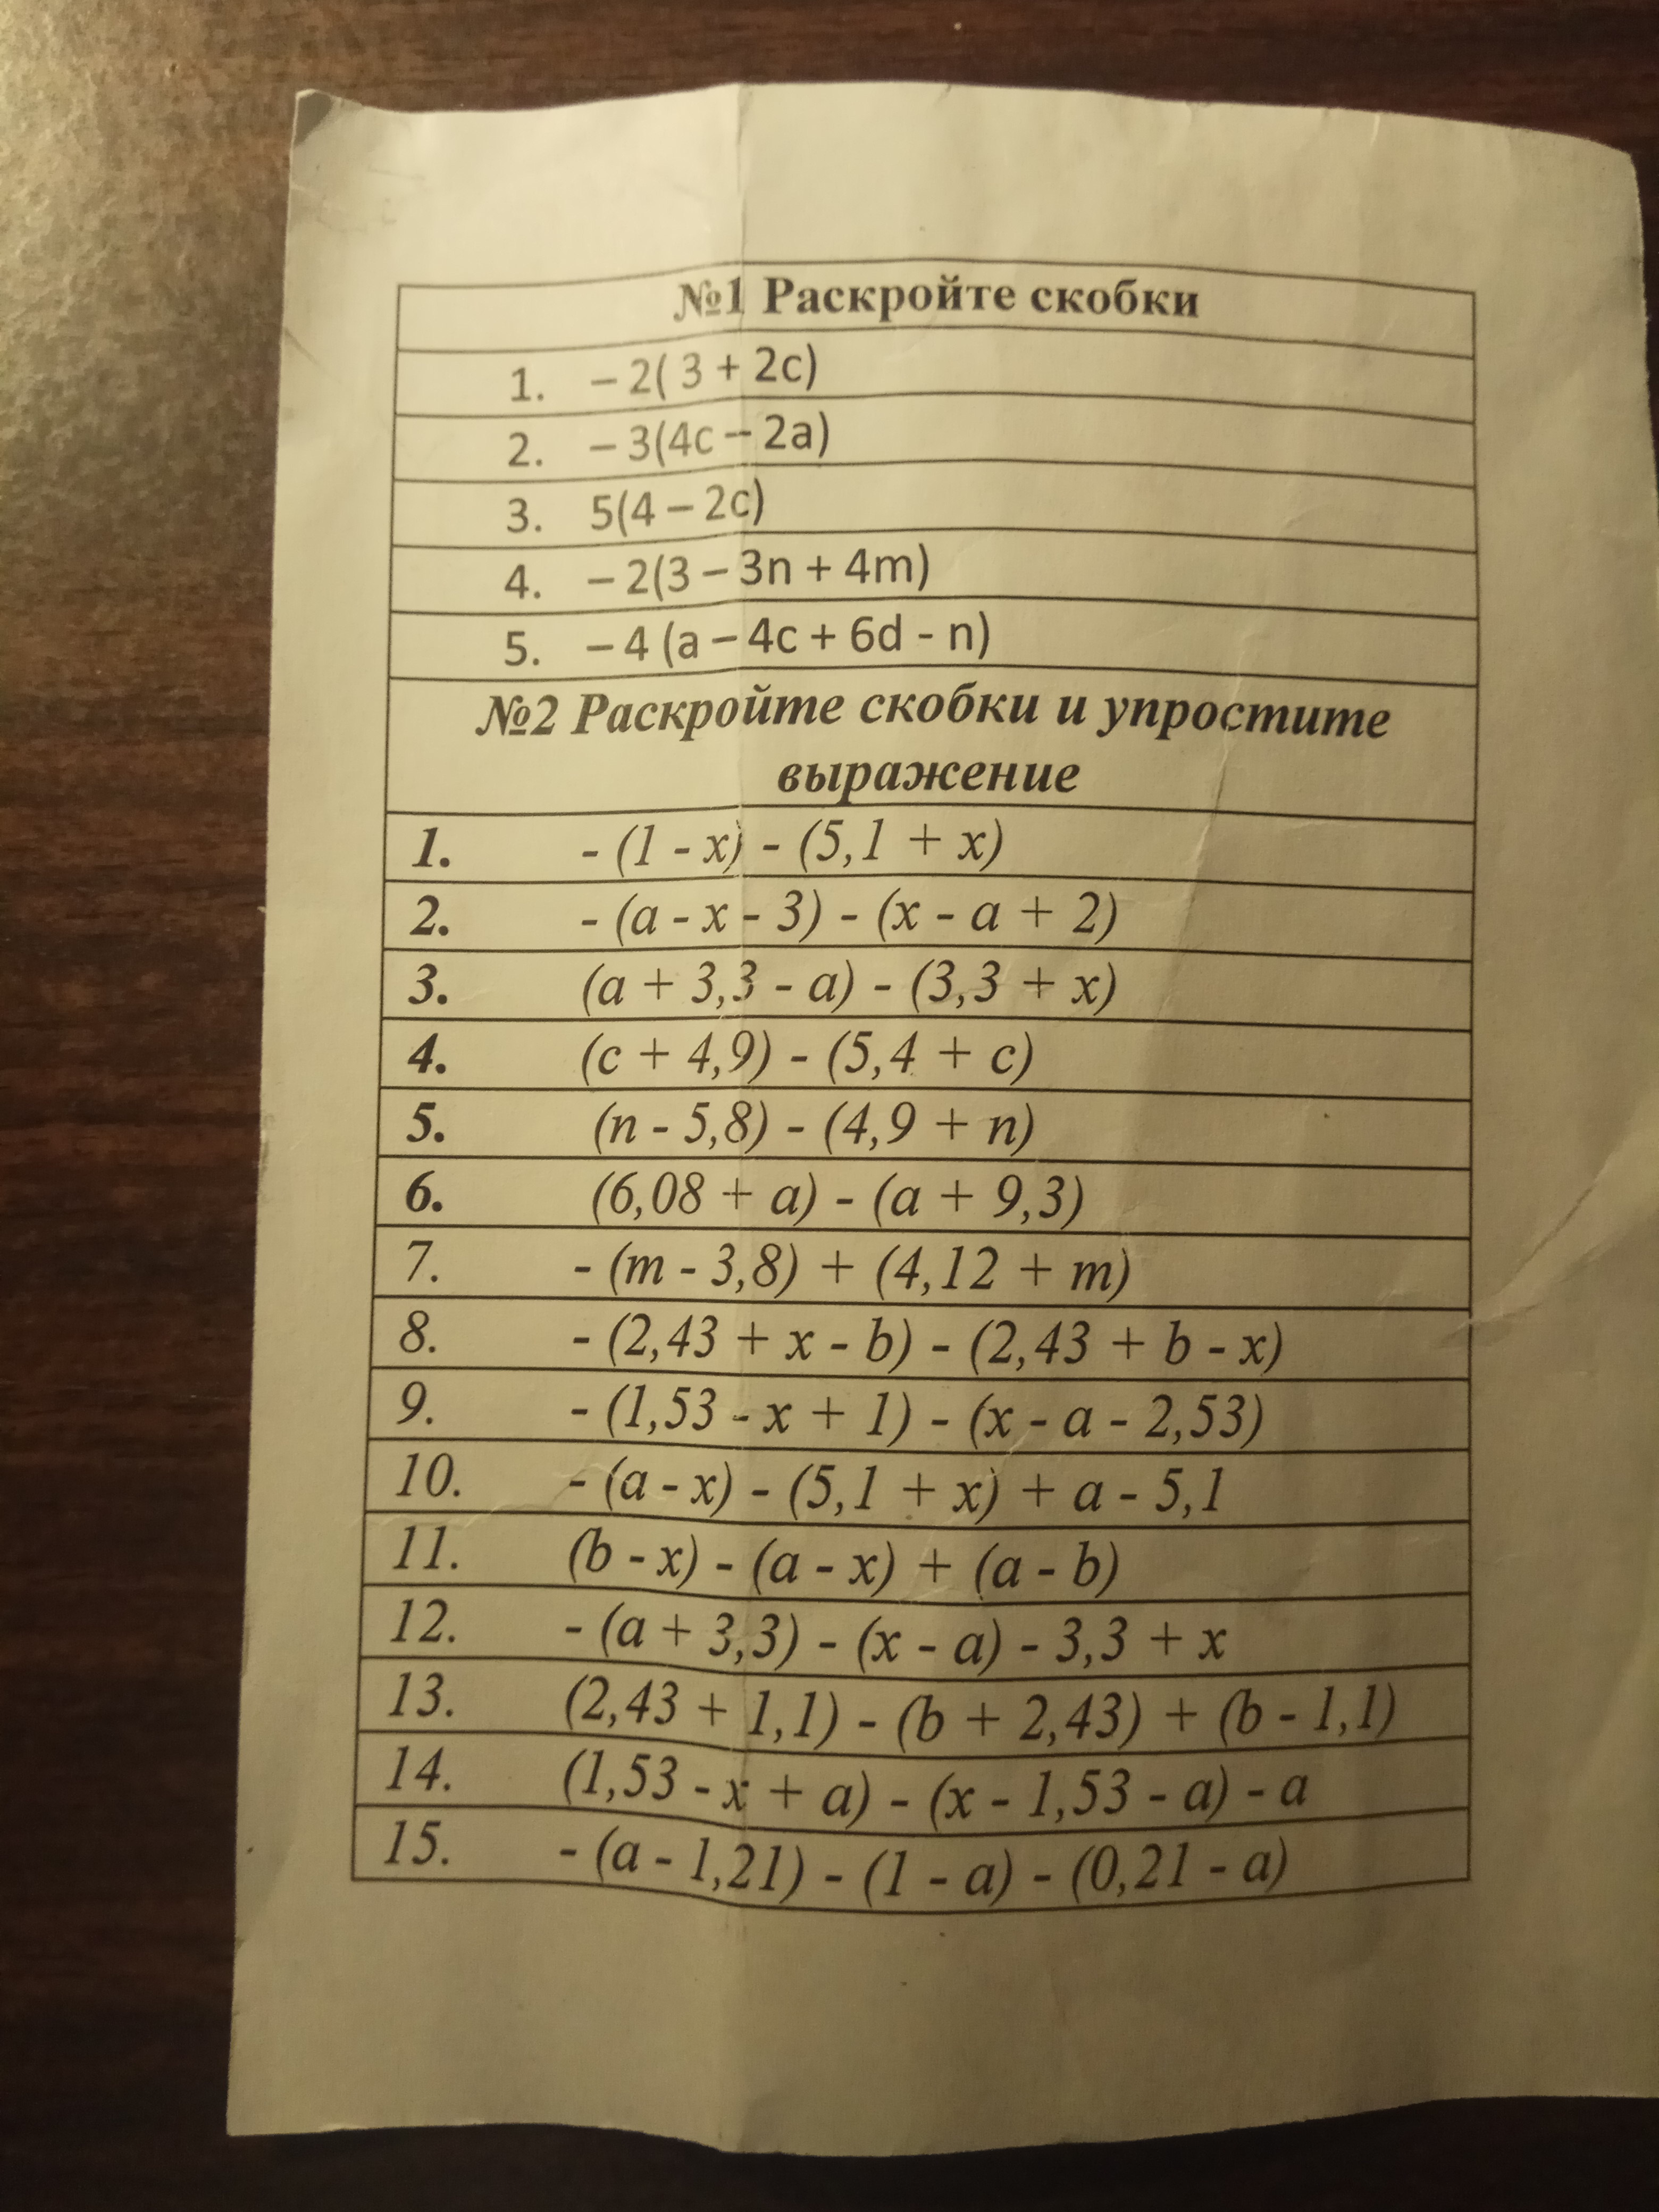 №1 Раскройте скобки
1. – 2( 3 + 2c)
2. – 3(4c – 2a)
3. 5(4 – 2c)
4. – 2(3 – 3n + 4m)
5. – 4 (a – 4c + 6d - n)
№2 Раскройте скобки и упростите
выражение
1. - (1 - x) - (5,1 + x)
2. - (a - x - 3) - (x - a + 2)
3. (a + 3,3 - a) - (3,3 + x)
4. (c + 4,9) - (5,4 + c)
5. (n - 5,8) - (4,9 + n)
6. (6,08 + a) - (a + 9,3)
7. - (m - 3,8) + (4,12 + m)
8. - (2,43 + x - b) - (2,43 + b - x)
9. - (1,53 - x + 1) - (x - a - 2,53)
10. - (a - x) - (5,1 + x) + a - 5,1
11. (b - x) - (a - x) + (a - b)
12. - (a + 3,3) - (x - a) - 3,3 + x
13. (2,43 + 1,1) - (b + 2,43) + (b - 1,1)
14. (1,53 - x + a) - (x - 1,53 - a) - a
15. - (a - 1,21) - (1 - a) - (0,21 - a)